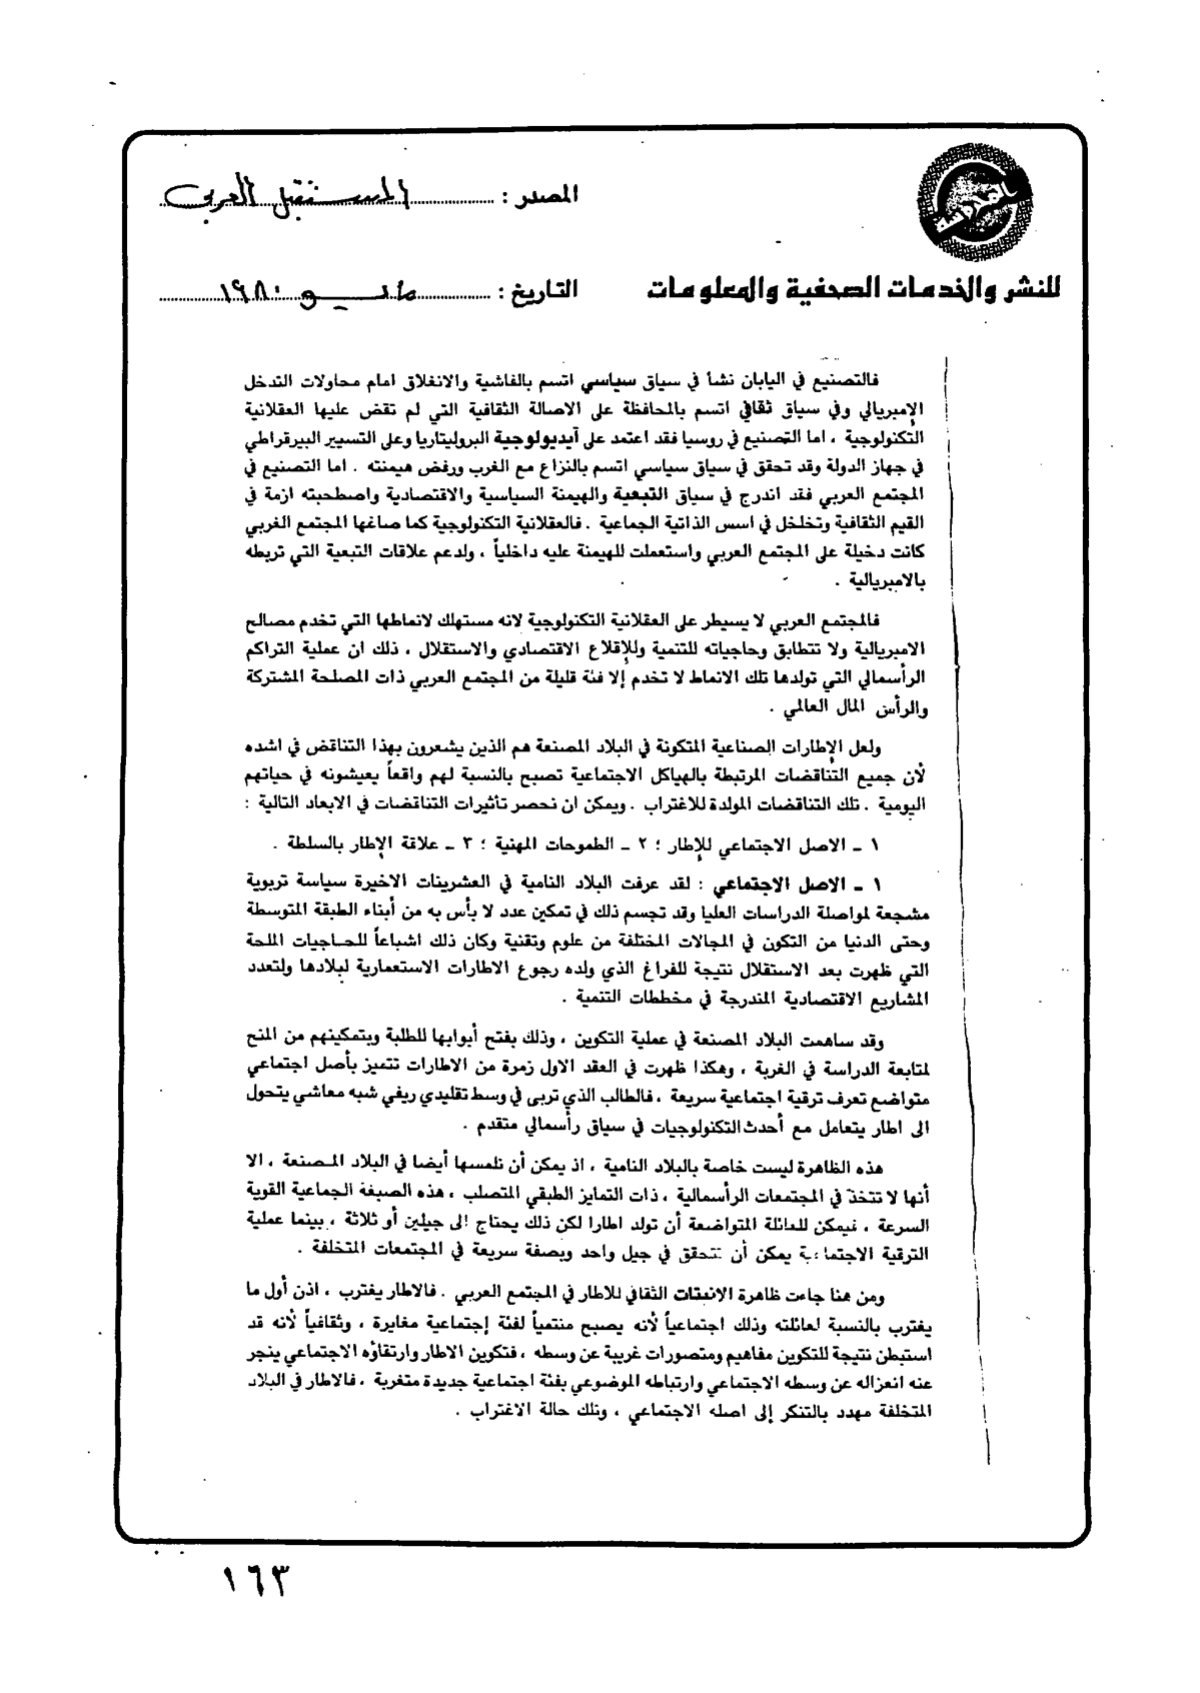 المصدر : المستقبل العربي
للنشر والخدمات الصحفية والمعلومات
التاريخ : مايو ١٩٨٠
فالتصنيع في اليابان نشأ في سياق سياسي اتسم بالفاشية والانغلاق امام محاولات التدخل
الإمبريالي وفي سياق ثقافي اتسم بالمحافظة على الاصالة الثقافية التي لم تقض عليها العقلانية
التكنولوجية ، اما التصنيع في روسيا فقد اعتمد على آيديولوجية البروليتاريا وعلى التسيير البيرقراطي
في جهاز الدولة وقد تحقق في سياق سياسي اتسم بالنزاع مع الغرب ورفض هيمنته . اما التصنيع في
المجتمع العربي فقد اندرج في سياق التبعية والهيمنة السياسية والاقتصادية واصطحبته ازمة في
القيم الثقافية وتخلخل في اسس الذاتية الجماعية . فالعقلانية التكنولوجية كما صاغها المجتمع الغربي
كانت دخيلة على المجتمع العربي واستعملت للهيمنة عليه داخلياً ، ولدعم علاقات التبعية التي تربطه
بالامبريالية .
فالمجتمع العربي لا يسيطر على العقلانية التكنولوجية لانه مستهلك لانماطها التي تخدم مصالح
الامبريالية ولا تتطابق وحاجياته للتنمية وللإقلاع الاقتصادي والاستقلال ، ذلك ان عملية التراكم
الرأسمالي التي تولدها تلك الانماط لا تخدم إلا فئة قليلة من المجتمع العربي ذات المصلحة المشتركة
والرأس المال العالمي .
ولعل الإطارات الصناعية المتكونة في البلاد المصنعة هم الذين يشعرون بهذا التناقض في اشده
لأن جميع التناقضات المرتبطة بالهياكل الاجتماعية تصبح بالنسبة لهم واقعاً يعيشونه في حياتهم
اليومية . تلك التناقضات المولدة للاغتراب . ويمكن ان نحصر تأثيرات التناقضات في الابعاد التالية :
١ ـ الاصل الاجتماعي للإطار ؛ ٢ ـ الطموحات المهنية ؛ ٣ ـ علاقة الإطار بالسلطة .
١ ـ الاصل الاجتماعي : لقد عرفت البلاد النامية في العشرينات الاخيرة سياسة تربوية
مشجعة لمواصلة الدراسات العليا وقد تجسم ذلك في تمكين عدد لا بأس به من أبناء الطبقة المتوسطة
وحتى الدنيا من التكون في المجالات المختلفة من علوم وتقنية وكان ذلك اشباعاً للحاجيات الملحة
التي ظهرت بعد الاستقلال نتيجة للفراغ الذي ولده رجوع الاطارات الاستعمارية لبلادها ولتعدد
المشاريع الاقتصادية المندرجة في مخططات التنمية .
وقد ساهمت البلاد المصنعة في عملية التكوين ، وذلك بفتح أبوابها للطلبة وبتمكينهم من المنح
لمتابعة الدراسة في الغربة ، وهكذا ظهرت في العقد الاول زمرة من الاطارات تتميز بأصل اجتماعي
متواضع تعرف ترقية اجتماعية سريعة ، فالطالب الذي تربى في وسط تقليدي ريفي شبه معاشي يتحول
الى اطار يتعامل مع أحدث التكنولوجيات في سياق رأسمالي متقدم .
هذه الظاهرة ليست خاصة بالبلاد النامية ، اذ يمكن أن نلمسها أيضا في البلاد المصنعة ، الا
أنها لا تتخذ في المجتمعات الرأسمالية ، ذات التمايز الطبقي المتصلب ، هذه الصبغة الجماعية القوية
السرعة ، فيمكن للعائلة المتواضعة أن تولد اطارا لكن ذلك يحتاج الى جيلين أو ثلاثة ، بينما عملية
الترقية الاجتماعية يمكن أن تتحقق في جيل واحد وبصفة سريعة في المجتمعات المتخلفة .
ومن هنا جاءت ظاهرة الانبتات الثقافي للاطار في المجتمع العربي . فالاطار يغترب ، اذن أول ما
يغترب بالنسبة لعائلته وذلك اجتماعياً لأنه يصبح منتمياً لفئة إجتماعية مغايرة ، وثقافياً لأنه قد
استبطن نتيجة للتكوين مفاهيم ومتصورات غريبة عن وسطه ، فتكوين الاطار وارتقاؤه الاجتماعي ينجر
عنه انعزاله عن وسطه الاجتماعي وارتباطه الموضوعي بفئة اجتماعية جديدة متغربة ، فالاطار في البلاد
المتخلفة مهدد بالتنكر إلى اصله الاجتماعي ، وتلك حالة الاغتراب .
١٦٣